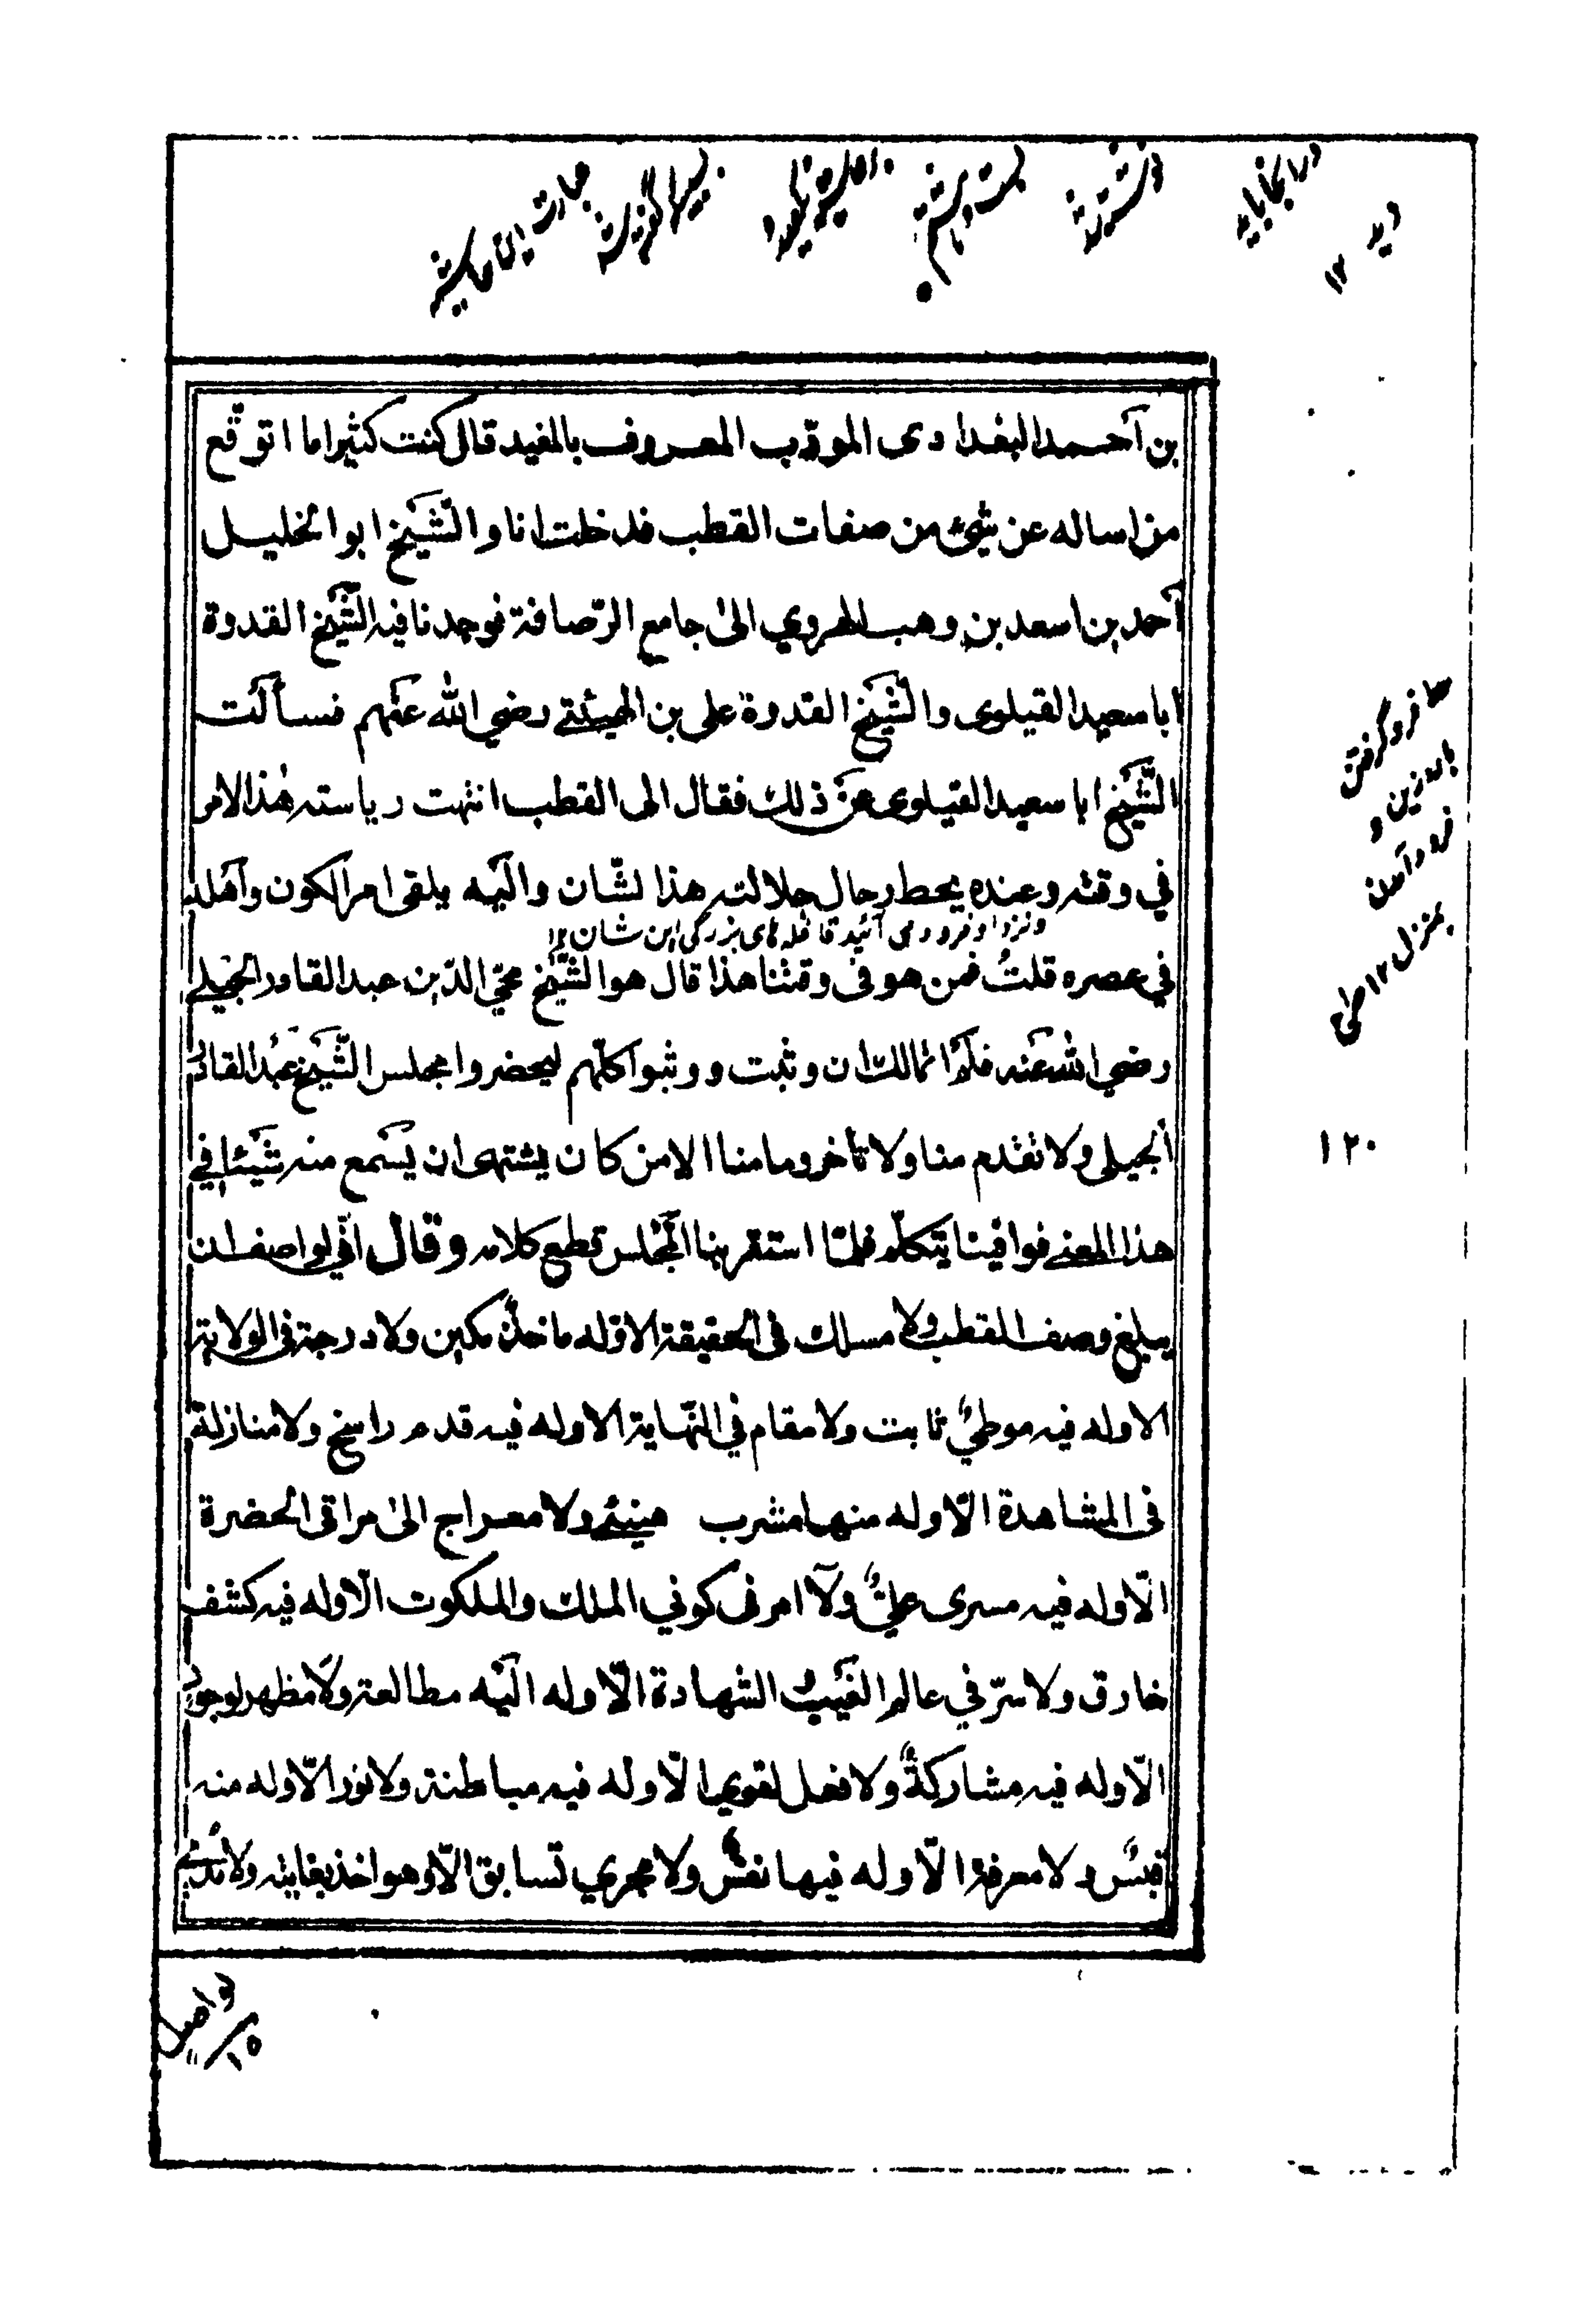 بن احمد البغدادى المودّب المعروف بالمفيد قال كنت كثيرا ما اتوقّع
من اساله عن شىء من صفات القطب فدخلت انا والشّيخ ابو الخليل
احمد بن اسعد بن وهب الهروي الىٰ جامع الرّصافة فوجدنا فيه الشّيخ القدوة
ابا سعيد القيلوى والشّيخ القدوة على بن الهيئتے رضي الله عنهم فسألت
الشّيخ ابا سعيد القيلوى عن ذلك فقال الى القطب انتهت رياسته هٰذا الامر
في وقته وعنده يحط رحال جلالته هذا لشّان واليه يلقى امر الكون واهله
ونزد او فرود مى آئيد قافله هاى بزرگى اين شان ١٢
في عصره قلتُ فمن هو فى وقتنا هذا قال هو الشّيخ محي الدّين عبد القادر الجيلے
رضي الله عنه فلم اتمالك ان وثبت ووثبوا كلّهم ليحضروا مجلس الشّيخ عبد القادر
الجيلى ولا تقدم منا ولا تأخر وما منا الا من كان يشتهى ان يسمع منه شيئا في
هذا المعنے فوافينا يتكلّم فلمّا استقر بنا المجلس قطع كلامه وقال انّي لواصف ان
يبلغ وصف القطب ولا مسلك فى الحقيقة الا وله ماخذ مكين ولا درجة فى الولاية
الا وله فيه موطئٌ ثابت ولا مقام في النّهاية الا وله فيه قدم راسخ ولا منازلة
فى المشاهدة الّا وله منها مشرب هنيئے ولا معراج الىٰ مراقى الحضرة
الّا وله فيه مسرى عليٌّ ولا امر فى كوني الملك والملكوت الّا وله فيه كشف
خارق ولا سرّ في عالم الغيب والشهادة الّا وله اليه مطالعة ولا مظهر لوجود
الّا وله فيه مشاركةٌ ولا فعل لقوي الّا وله فيه مباطنة ولا نور الّا وله منه
قبسٌ ولا معرفة الّا وله فيها نفسٌ ولا مجري تسابق الّا وهو اخذ بغايته ولا
فرو گرفتن
زين و
فرود آمدن
بمنزل ١٢
١٢٠